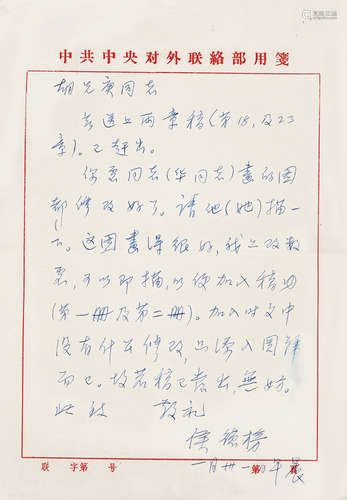 中共中央对外联络部用笺
胡先庚同志
兹送上两章稿(第18,及23
章)。已赶出。
你处同志(华同志)画的图
都修改好了。请他(她)描一
下。这图画得很好,我只改数
处,可以即描,以便加入稿内
(第一册及第二册)。加入时文中
没有什么修改,只添入图解
而已。故若稿已卷出,无妨。
此致 敬礼
侯德榜
一月卅一日 晨
联 字第 号 第 页